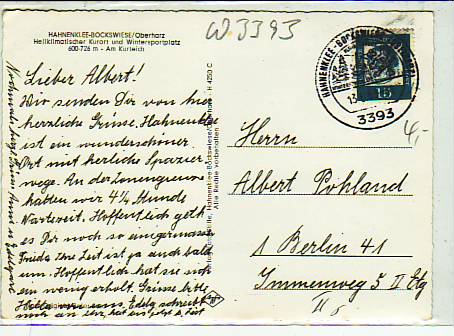 W 3393
HAHNENKLEE-BOCKSWIESE/Oberharz
Heilklimatischer Kurort und Wintersportplatz
600-726 m - Am Kurteich
15
3393
4,-
Lieber Albert!
Wir senden Dir von hier
herzliche Grüsse. Hahnenklee
ist ein wunderschöner
Ort mit herliche Spazier
wege. An der Zonengrenze
hatten wir 4½ Stunde
Wartezeit. Hoffentlich geth
es Dir noch so einigermasse
Frieda Ihre Zeit ist ja auch bald
um. Hoffentlich hat sie sich
ein wenig erholt. Grüsse bitte
H 4250 C
Alle Rechte vorbehalten
Herrn
Albert Pohland
1 Berlin 41
Immenweg 5 II Etg